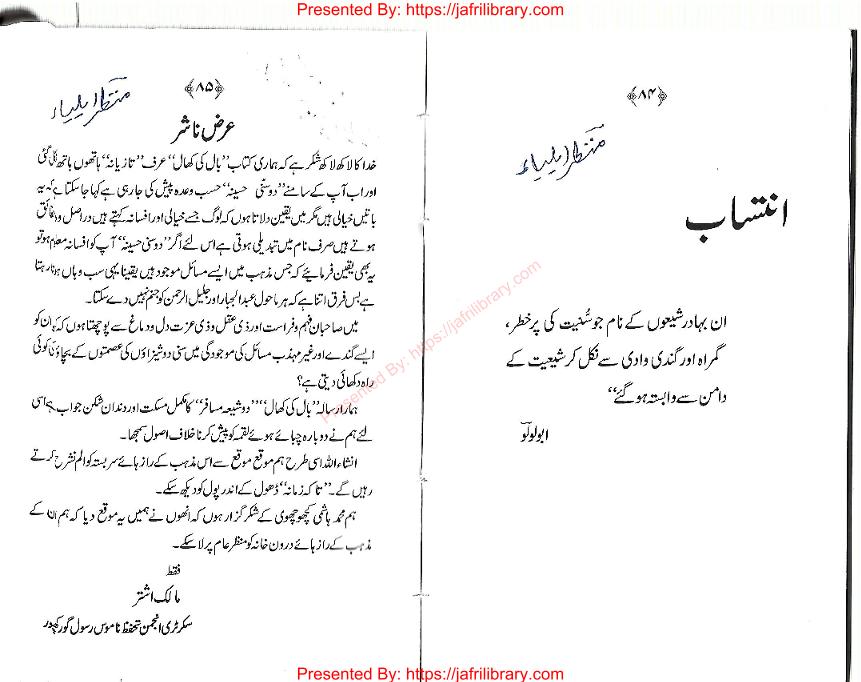 Presented By: https://jafrilibrary.com
﴿۸۴﴾
منتظر ایلیاء
انتساب
ان بہادر شیعوں کے نام جو سُنیت کی پرخطر،
گمراہ اور گندی وادی سے نکل کر شیعیت کے
دامن سے وابستہ ہو گئے“
ابو لولو
﴿۸۵﴾
منتظر ایلیاء
عرض ناشر
خدا کا لاکھ لاکھ شکر ہے کہ ہماری کتاب ”بال کی کھال“ عرف ”تازیانہ“ ہاتھوں ہاتھ لی گئی
اور اب آپ کے سامنے ”دوسنی حسینہ“ حسب وعدہ پیش کی جارہی ہے کہا جا سکتا ہے کہ یہ
باتیں خیالی ہیں مگر میں یقین دلاتا ہوں کہ لوگ جسے خیالی اور افسانہ کہتے ہیں دراصل وہ حقائق
ہوتے ہیں صرف نام میں تبدیلی ہوتی ہے اس لئے اگر ”دوسنی حسینہ“ آپ کو افسانہ معلوم ہو تو
یہ بھی یقین فرمایئے کہ جس مذہب میں ایسے مسائل موجود ہیں یقیناً یہی سب وہاں ہوتا رہتا
ہے بس فرق اتنا ہے کہ ہر ماحول عبدالجبار اور جلیل الرحمن کو جنم نہیں دے سکتا۔
میں صاحبان فہم و فراست اور ذی عقل و ذی عزت دل و دماغ سے پوچھتا ہوں کہ کیا ان کو
ایسے گندے اور غیر مہذب مسائل کی موجودگی میں سنی دوشیزاؤں کی عصمتوں کے بچاؤ کا کوئی
راہ دکھائی دیتی ہے؟
ہمارا رسالہ ”بال کی کھال“ ”دو شیعہ مسافر“ کا مکمل مسکت اور دندان شکن جواب ہے اسی
لئے ہم نے دوبارہ چبائے ہوئے لقمہ کو پیش کرنا خلاف اصول سمجھا۔
انشاء اللہ اسی طرح ہم موقع موقع سے اس مذہب کے راز ہائے سربستہ کو الم نشرح کرتے
رہیں گے۔ ”تاکہ زمانہ“ ڈھول کے اندر پول کو دیکھ سکے۔
ہم محمد ہاشمی کچھوچھوی کے شکر گزار ہوں کہ انھوں نے ہمیں یہ موقع دیا کہ ہم ان کے
مذہب کے راز ہائے درون خانہ کو منظر عام پر لا سکے۔
فقط
مالک اشتر
سکرٹری انجمن تحفظ ناموس رسول گورکھپور
Presented By: https://jafrilibrary.com
Presented By: https://jafrilibrary.com